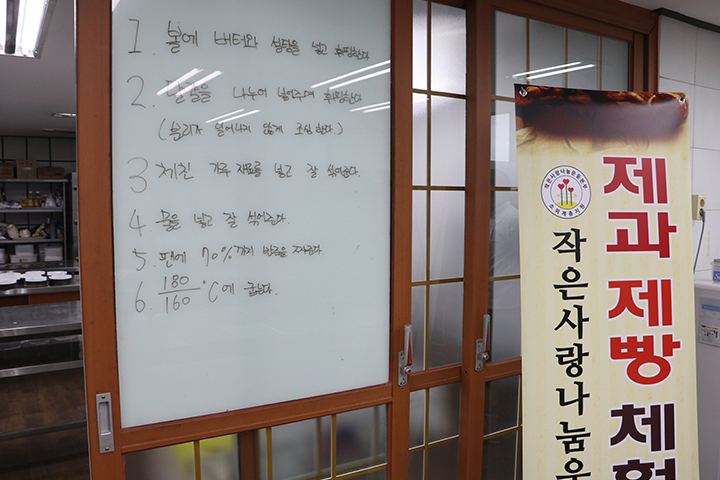 1. 볼에 버터와 설탕을 넣고 휘핑한다
2. 달걀을 나누어 넣어주며 휘핑한다
(분리가 일어나지 않게 조심 한다.)
3. 체친 가루 재료를 넣고 잘 섞어준다.
4. 물을 넣고 잘 섞어준다.
5. 팬에 70% 까지 반죽을 채워준다.
6. 180/160 ℃에 굽는다.
제과 제빵 체험
작은사랑나눔운
작은사랑나눔운동본부
소외계층지원